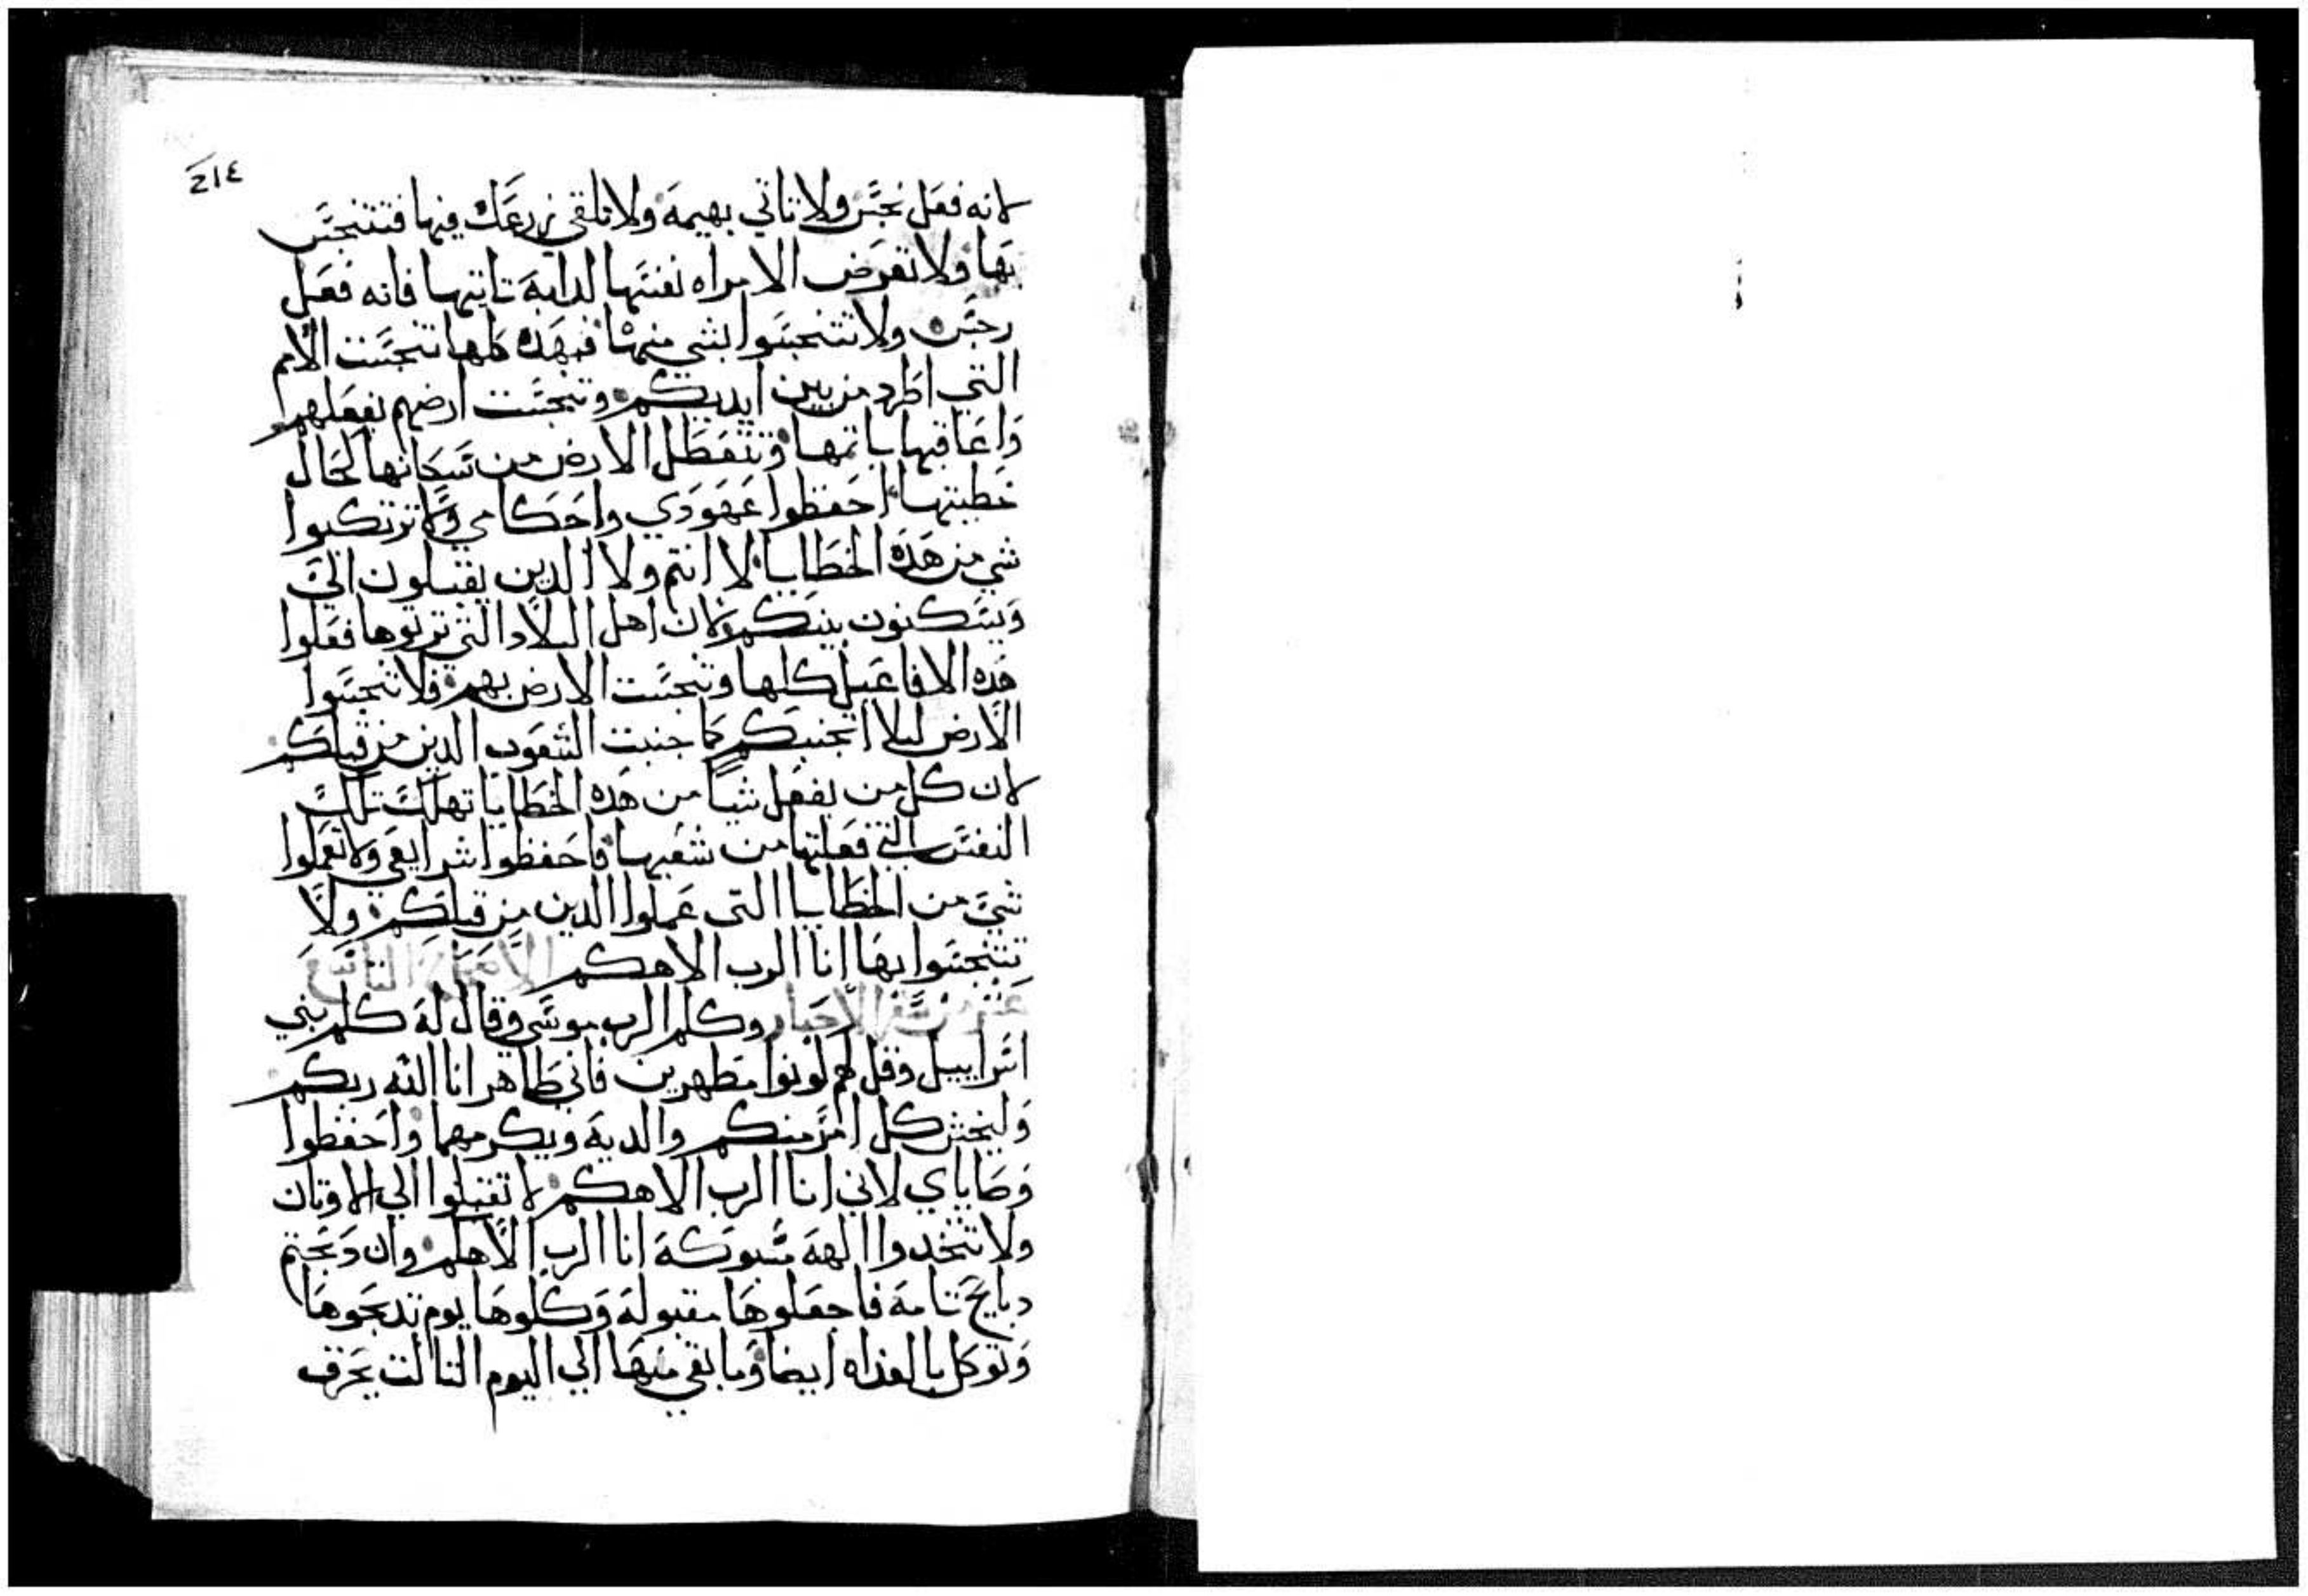 ٢١٤
لانه فعل نجس ولا تاتي بهيمه ولا تلقي زرعك فيها فتتنجس
بها ولا تعرض الامراه نفسها لدابه تاتيها فانه فعل
رجس ولا تتنجسوا بشي منها فبهده كلها تنجست الامم
التي اطرد من بين ايديكم وتنجست ارضهم بفعلهم
واعاقبها باتمها وتتعطل الارض من سكانها لحال
خطيتها احفظوا عهودي واحكامي ولا ترتكبوا
شي من هده الخطايا لا انتم ولا الدين يقبلون الي
ويسكنون بينكم ولان اهل البلاد التي ترتوها فعلوا
هده الافاعيل كلها وتنجست الارض بهم فلا تنجسوا
الارض ليلا اتجنبكم كما جنبت الشعوب الدين من قبلكم
لان كل من يفعل شيا من هده الخطايا تهلك تلك
النفس التي فعلتها من شعبها فاحفظوا شرايعي ولا تعملوا
شي من الخطايا التي عملوا الدين من قبلكم ولا
تتنجسوا بها انا الرب الاهكم الاصحاح التاسع
عشر من سفر الاحبار وكلم الرب موسي وقال له كلم بني
اسراييل وقل لهم كونوا مطهرين فاني طاهر انا الله ربكم
وليخش كل امر منكم والديه ويكرمهما واحفظوا
وصاياي لاني انا الرب الاهكم لا تقبلوا الي الاوتان
ولا تتخدوا الهه مسبوكه انا الرب الاهكم وان دبحتم
دبايح تامه فاجعلوها مقبوله وكلوها يوم تدبحوها
وتوكل بالغداه ايضا وما بقي منها الي اليوم التالت يحرق